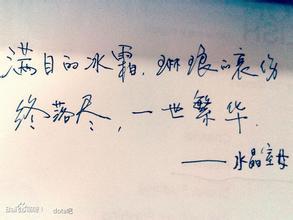 满目的冰霜,琳琅の哀伤
终落尽,一世繁华.
——水晶室女
dota吧